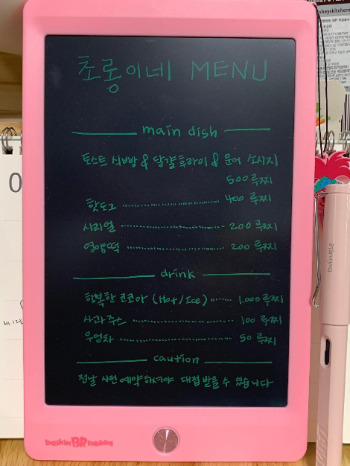 초롱이네 MENU
main dish
토스트 식빵 & 달걀 후라이 & 문어 소시지
500 루찌
핫도그 400 루찌
시리얼 200 루찌
영양떡 200 루찌
drink
행복한 코코아 (Hot/Ice) 1,000 루찌
사과주스 100 루찌
우엉차 50 루찌
caution
전날 사전 예약하여야 대접 받을 수 있습니다
baskin BR robbins